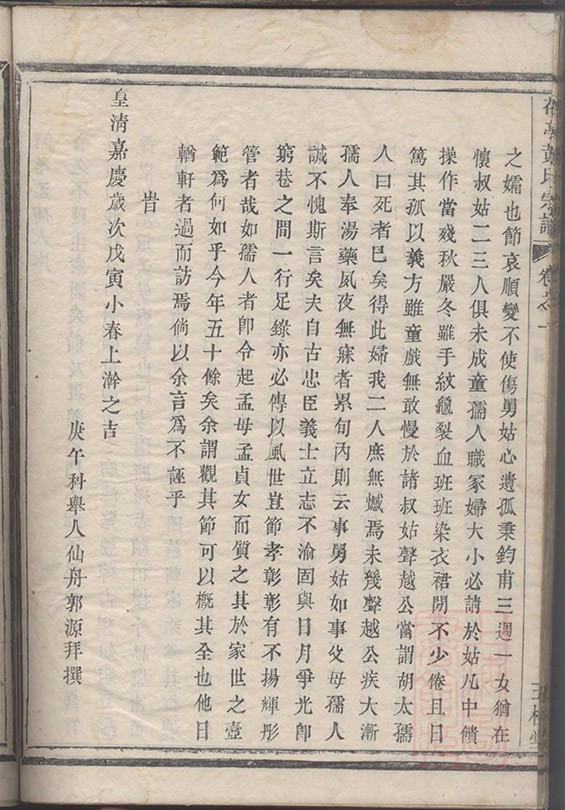 黃氏宗譜 卷之一
之孀也節哀順變不使傷舅姑心遺孤秉鈞甫三週一女猶在
懷叔姑二三人俱未成童孺人職冢婦大小必請於姑凡中饋
操作當殘秋嚴冬雖手紋龜裂血班班染衣裙閒不少倦且日
篤其孤以義方雖童戲無敢慢於諸叔姑聲越公嘗謂胡太孺
人曰死者巳矣得此婦我二人庶無憾焉未幾聲越公疾大漸
孺人奉湯藥夙夜無寐者累旬內則云事舅姑如事父母孺人
誠不愧斯言矣夫自古忠臣義士立志不渝固與日月爭光卽
窮巷之間一行足錄亦必傳以風世豈節孝彰彰有不揚輝彤
管者哉如孺人者卽令起孟母孟貞女而質之其於家世之壼
範爲何如乎今年五十餘矣余謂觀其節可以概其全也他日
輶軒者過而訪焉倘以余言爲不誣乎
旹
皇清嘉慶歲次戊寅小春上澣之吉
庚午科舉人仙舟郭源拜撰